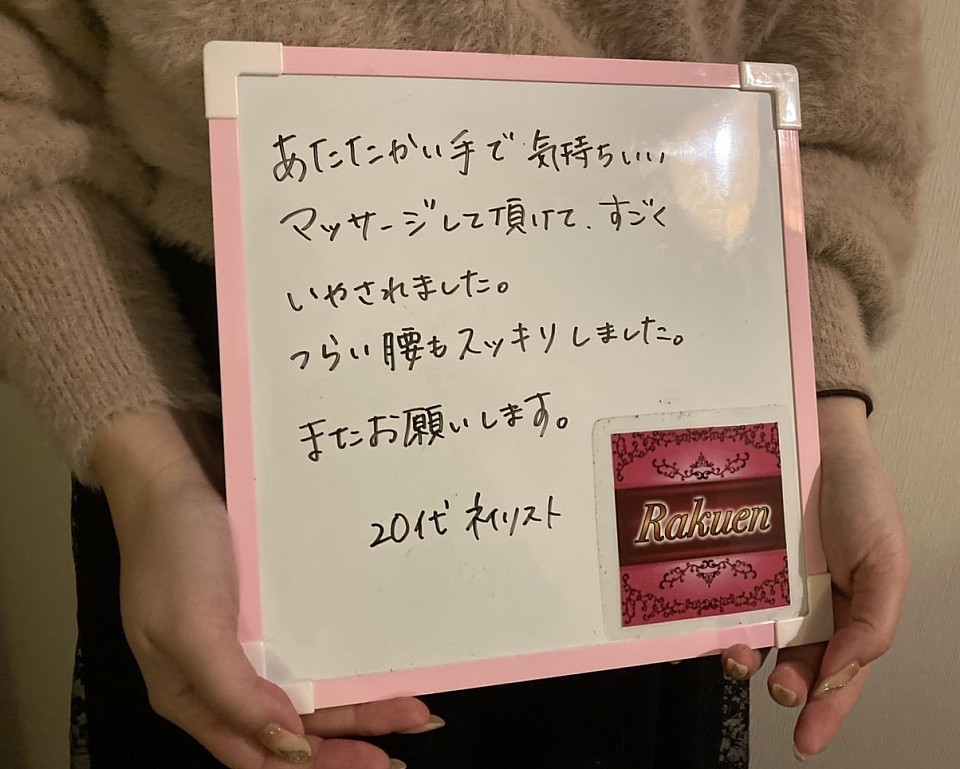 あたたかい手で気持ちいい
マッサージして頂けて、すごく
いやされました。
つらい腰もスッキリしました。
またお願いします。
20代 ネイリスト
Rakuen